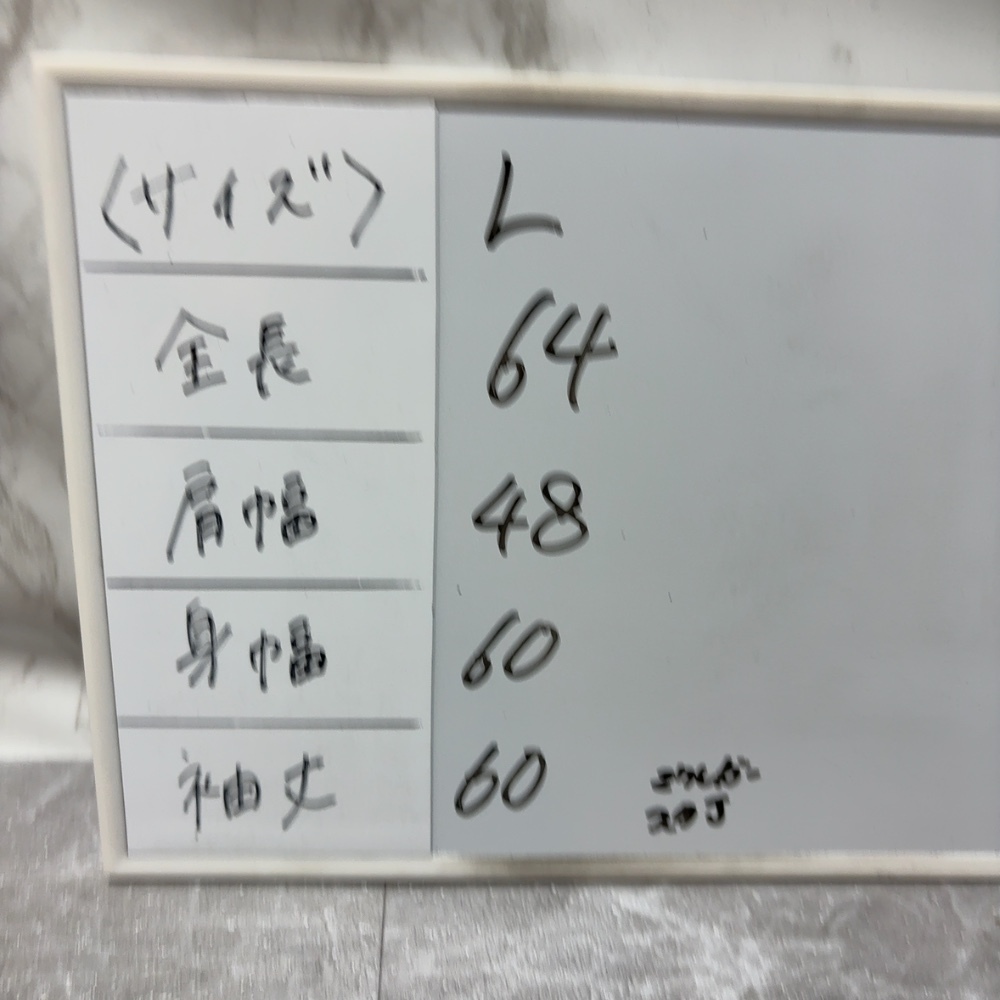 〈サイズ〉 L
全長 64
肩幅 48
身幅 60
袖丈 60